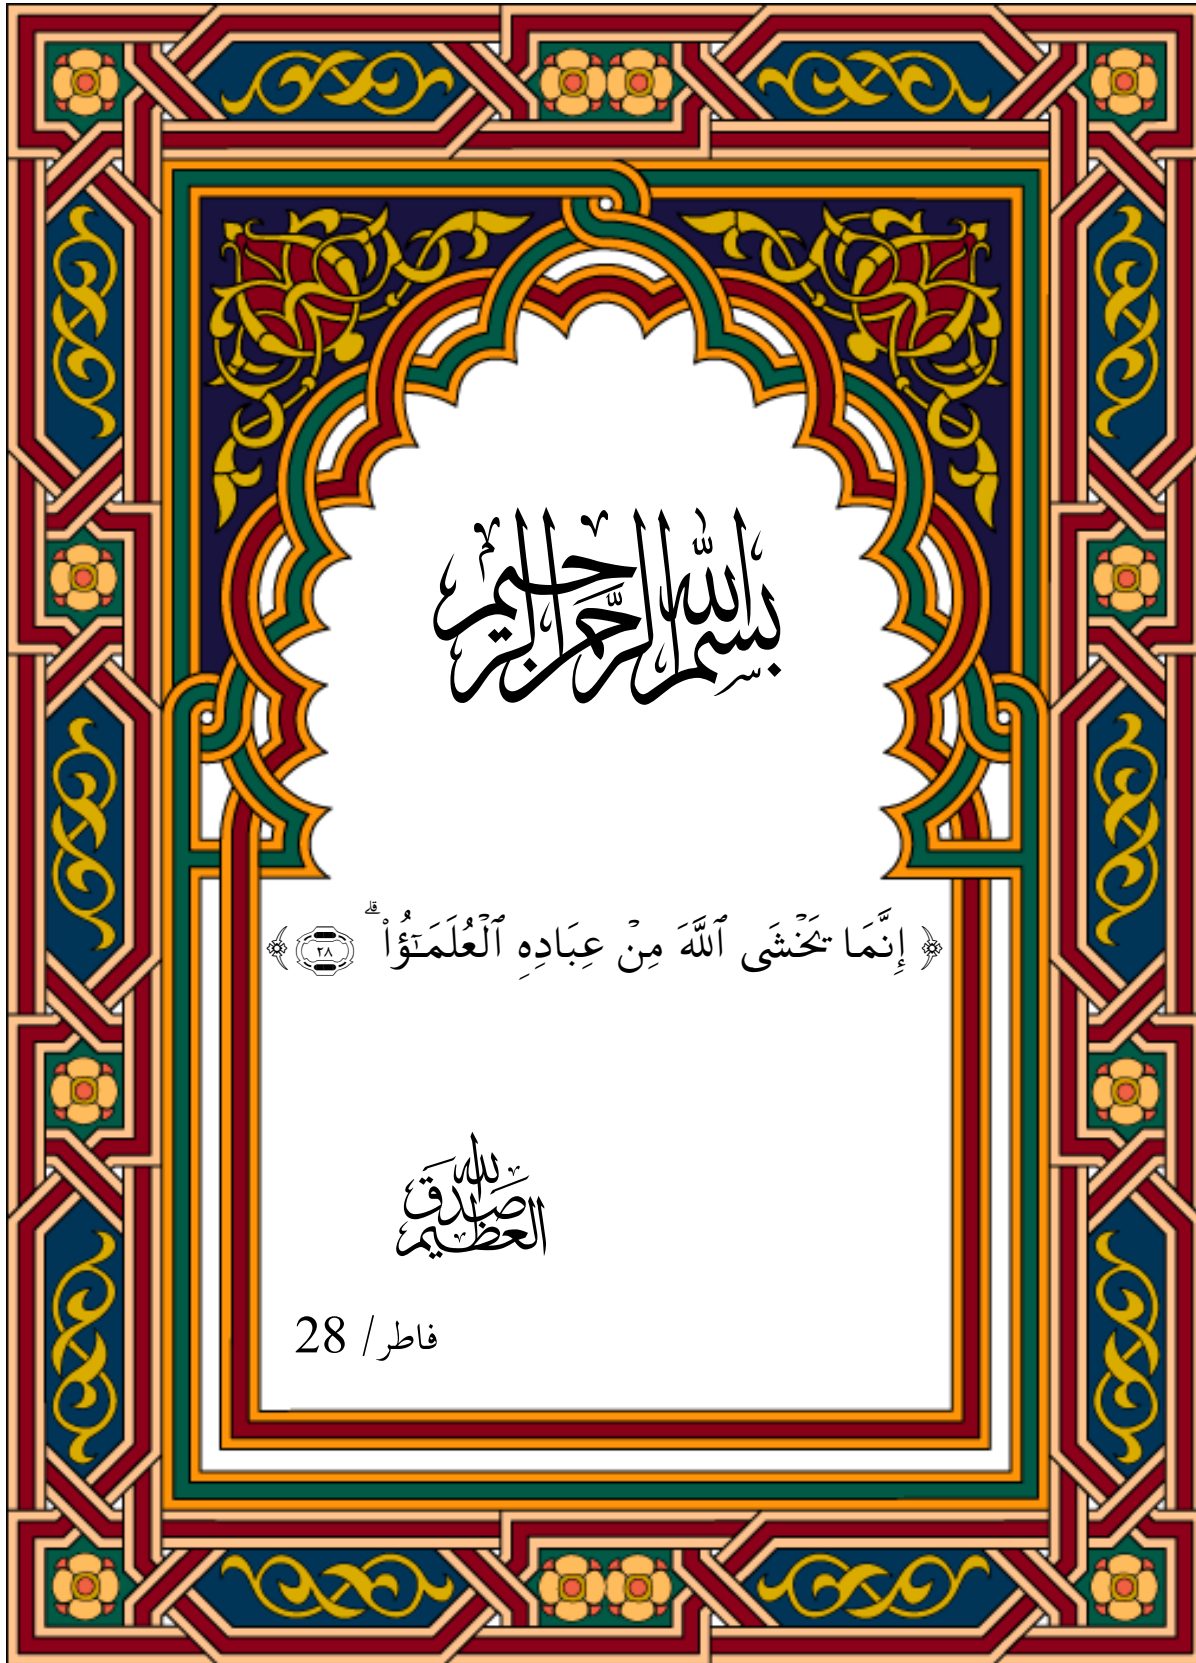 بسم الله الرحمن الرحيم
﴿ إِنَّمَا يَخْشَى ٱللَّهَ مِنْ عِبَادِهِ ٱلْعُلَمَـٰٓؤُا۟ ۗ ٢٨ ﴾
صدق الله العظيم
فاطر/ 28